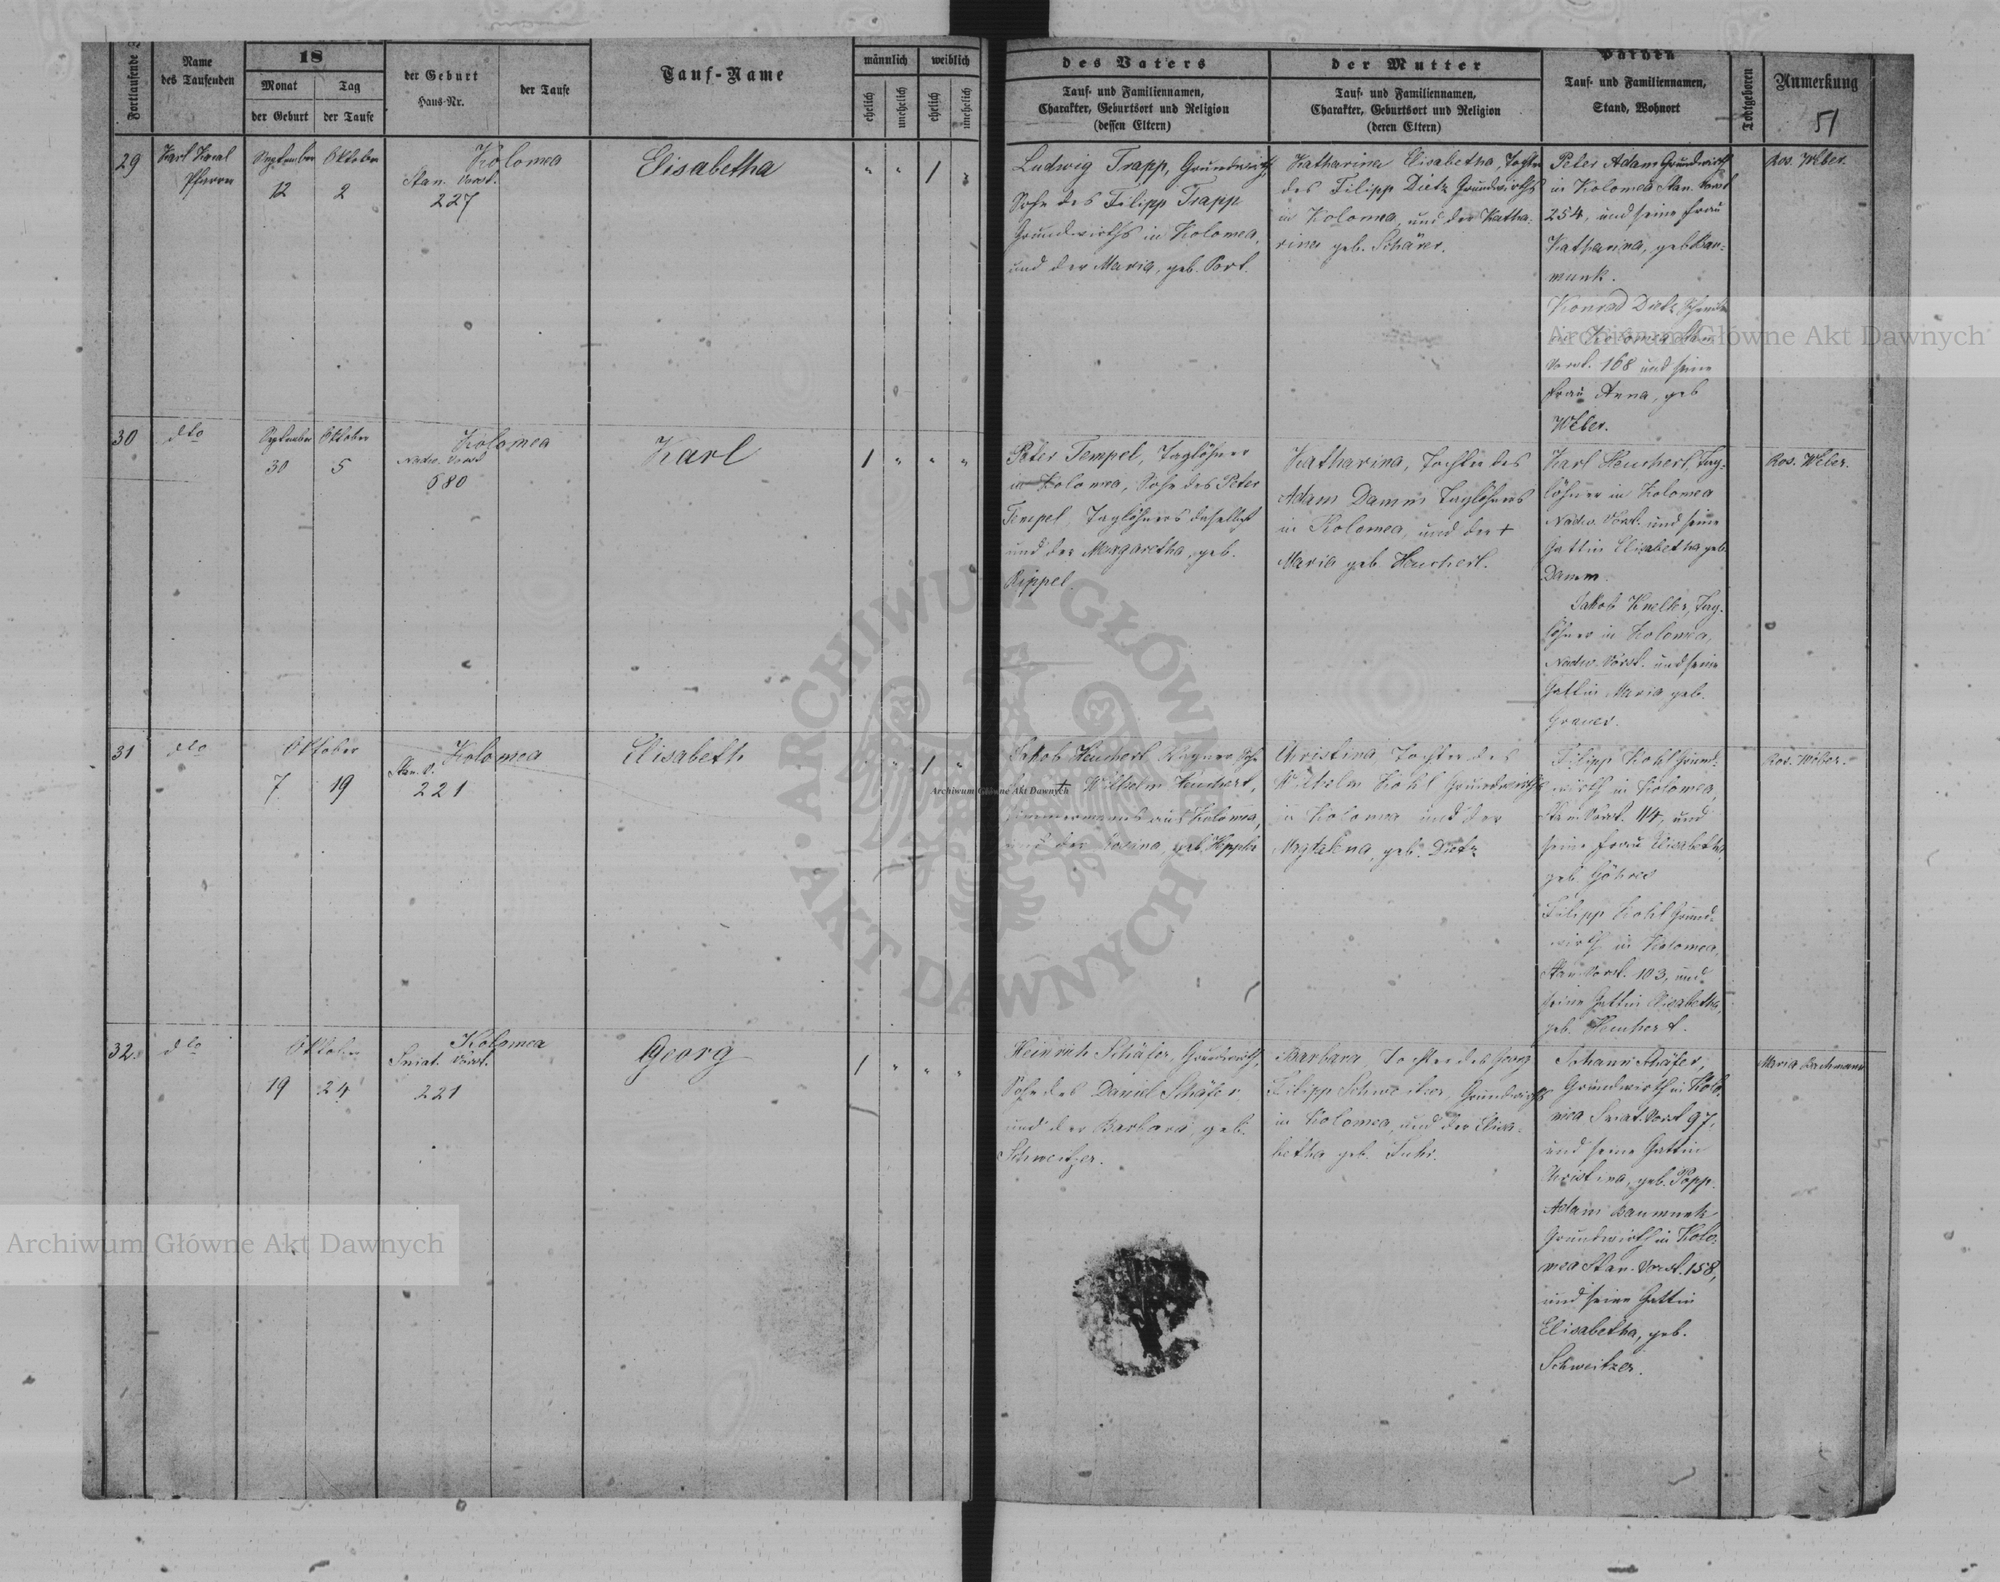 Fortlaufende
Name
des Taufenden
18
Monat
Tag
der Geburt
der Taufe
der Geburt
Haus-Nr.
der Taufe
Tauf-Name
männlich
weiblich
ehelich
unehelich
ehelich
unehelich
des Vaters
Tauf- und Familiennamen,
Charakter, Geburtsort und Religion
(dessen Eltern)
der Mutter
Tauf- und Familiennamen,
Charakter, Geburtsort und Religion
(deren Eltern)
Tauf- und Familiennamen,
Stand, Wohnort
Todtgeboren
Anmerkung
51
29
Karl
Pfarrer
September
Oktober
12
2
Kolomea
Stan. Vorst.
227
Elisabetha
" " 1 "
Ludwig Trapp, Grundwirth,
Sohn des Filipp Trapp
Grundwirths in Kolomea,
und der Maria, geb.
Katharina Elisabetha, Tochter
des Filipp Dietz Grundwirths
in Kolomea, und der Katha-
rina geb. Schärer.
Peter Adam Grundwirth
in Kolomea Stan. Vorst
254, und seine Frau
Katharina, geb. Bau-
munk.
Konrad Dietz
in Kolomea Stan.
Vorst. 168 und seine
Frau Anna, geb
Weber.
Ros. Weber.
30
dto
September
Oktober
30
5
Kolomea
Nadw. Vorst
580
Karl
1 " " "
Peter Tempel, Taglöhner
in Kolomea, Sohn des Peter
Tempel, Taglöhners daselbst
und der Margaretha, geb.
Rippel.
Katharina, Tochter des
Adam Damm Taglöhners
in Kolomea, und der +
Maria geb. Heuchert.
Karl Heuchert, Tag-
löhner in Kolomea
Nadw. Vorst. und seine
Gattin Elisabetha geb.
Damm.
Jakob Kneller, Tag-
löhner in Kolomea,
Nadw. Vorst. und seine
Gattin Maria geb.
Ros. Weber.
31
dto
Oktober
7
19
Kolomea
Stan. V.
221
Elisabeth
" " 1 "
Jakob Heuchert, Wagner Sohn
+ Wilhelm Heuchert,
Zimmermanns aus Kolomea,
und der Rosina, geb.
Christina Tochter des
Wilhelm Kohl Grundwirths
in Kolomea und der
Magdalena, geb. Dietz
Filipp Kohl Grund-
wirth in Kolomea,
Stan. Vorst. 114, und
seine Frau Elisabetha,
geb.
Filipp Kohl Grund-
wirth in Kolomea,
Stan. Vorst. 103, und
seine Gattin Elisabetha,
geb. Heuchert.
Ros. Weber.
32.
dto
Oktober
19
24
Kolomea
Sniat. Vorst.
221
Georg
1 " " "
Heinrich Schäfer, Grundwirth,
Sohn des Daniel Schäfer
und der Barbara geb.
Schweitzer.
Barbara Tochter des Georg
Filipp Schweitzer, Grundwirths
in Kolomea, und der Elisa-
betha geb. Fuhr.
Johann Schäfer,
Grundwirth in Kolo-
mea Sniat. Vorst 97,
und seine Gattin
Christina, geb. Popp.
Adam Baumunk
Grundwirth in Kolo-
mea Stan. Vorst. 158,
und seine Gattin
Elisabetha, geb.
Schweitzer.
Maria Bachmann
Archiwum Główne Akt Dawnych
Archiwum Główne Akt Dawnych
Archiwum Główne Akt Dawnych
ARCHIWUM GŁÓWNE AKT DAWNYCH